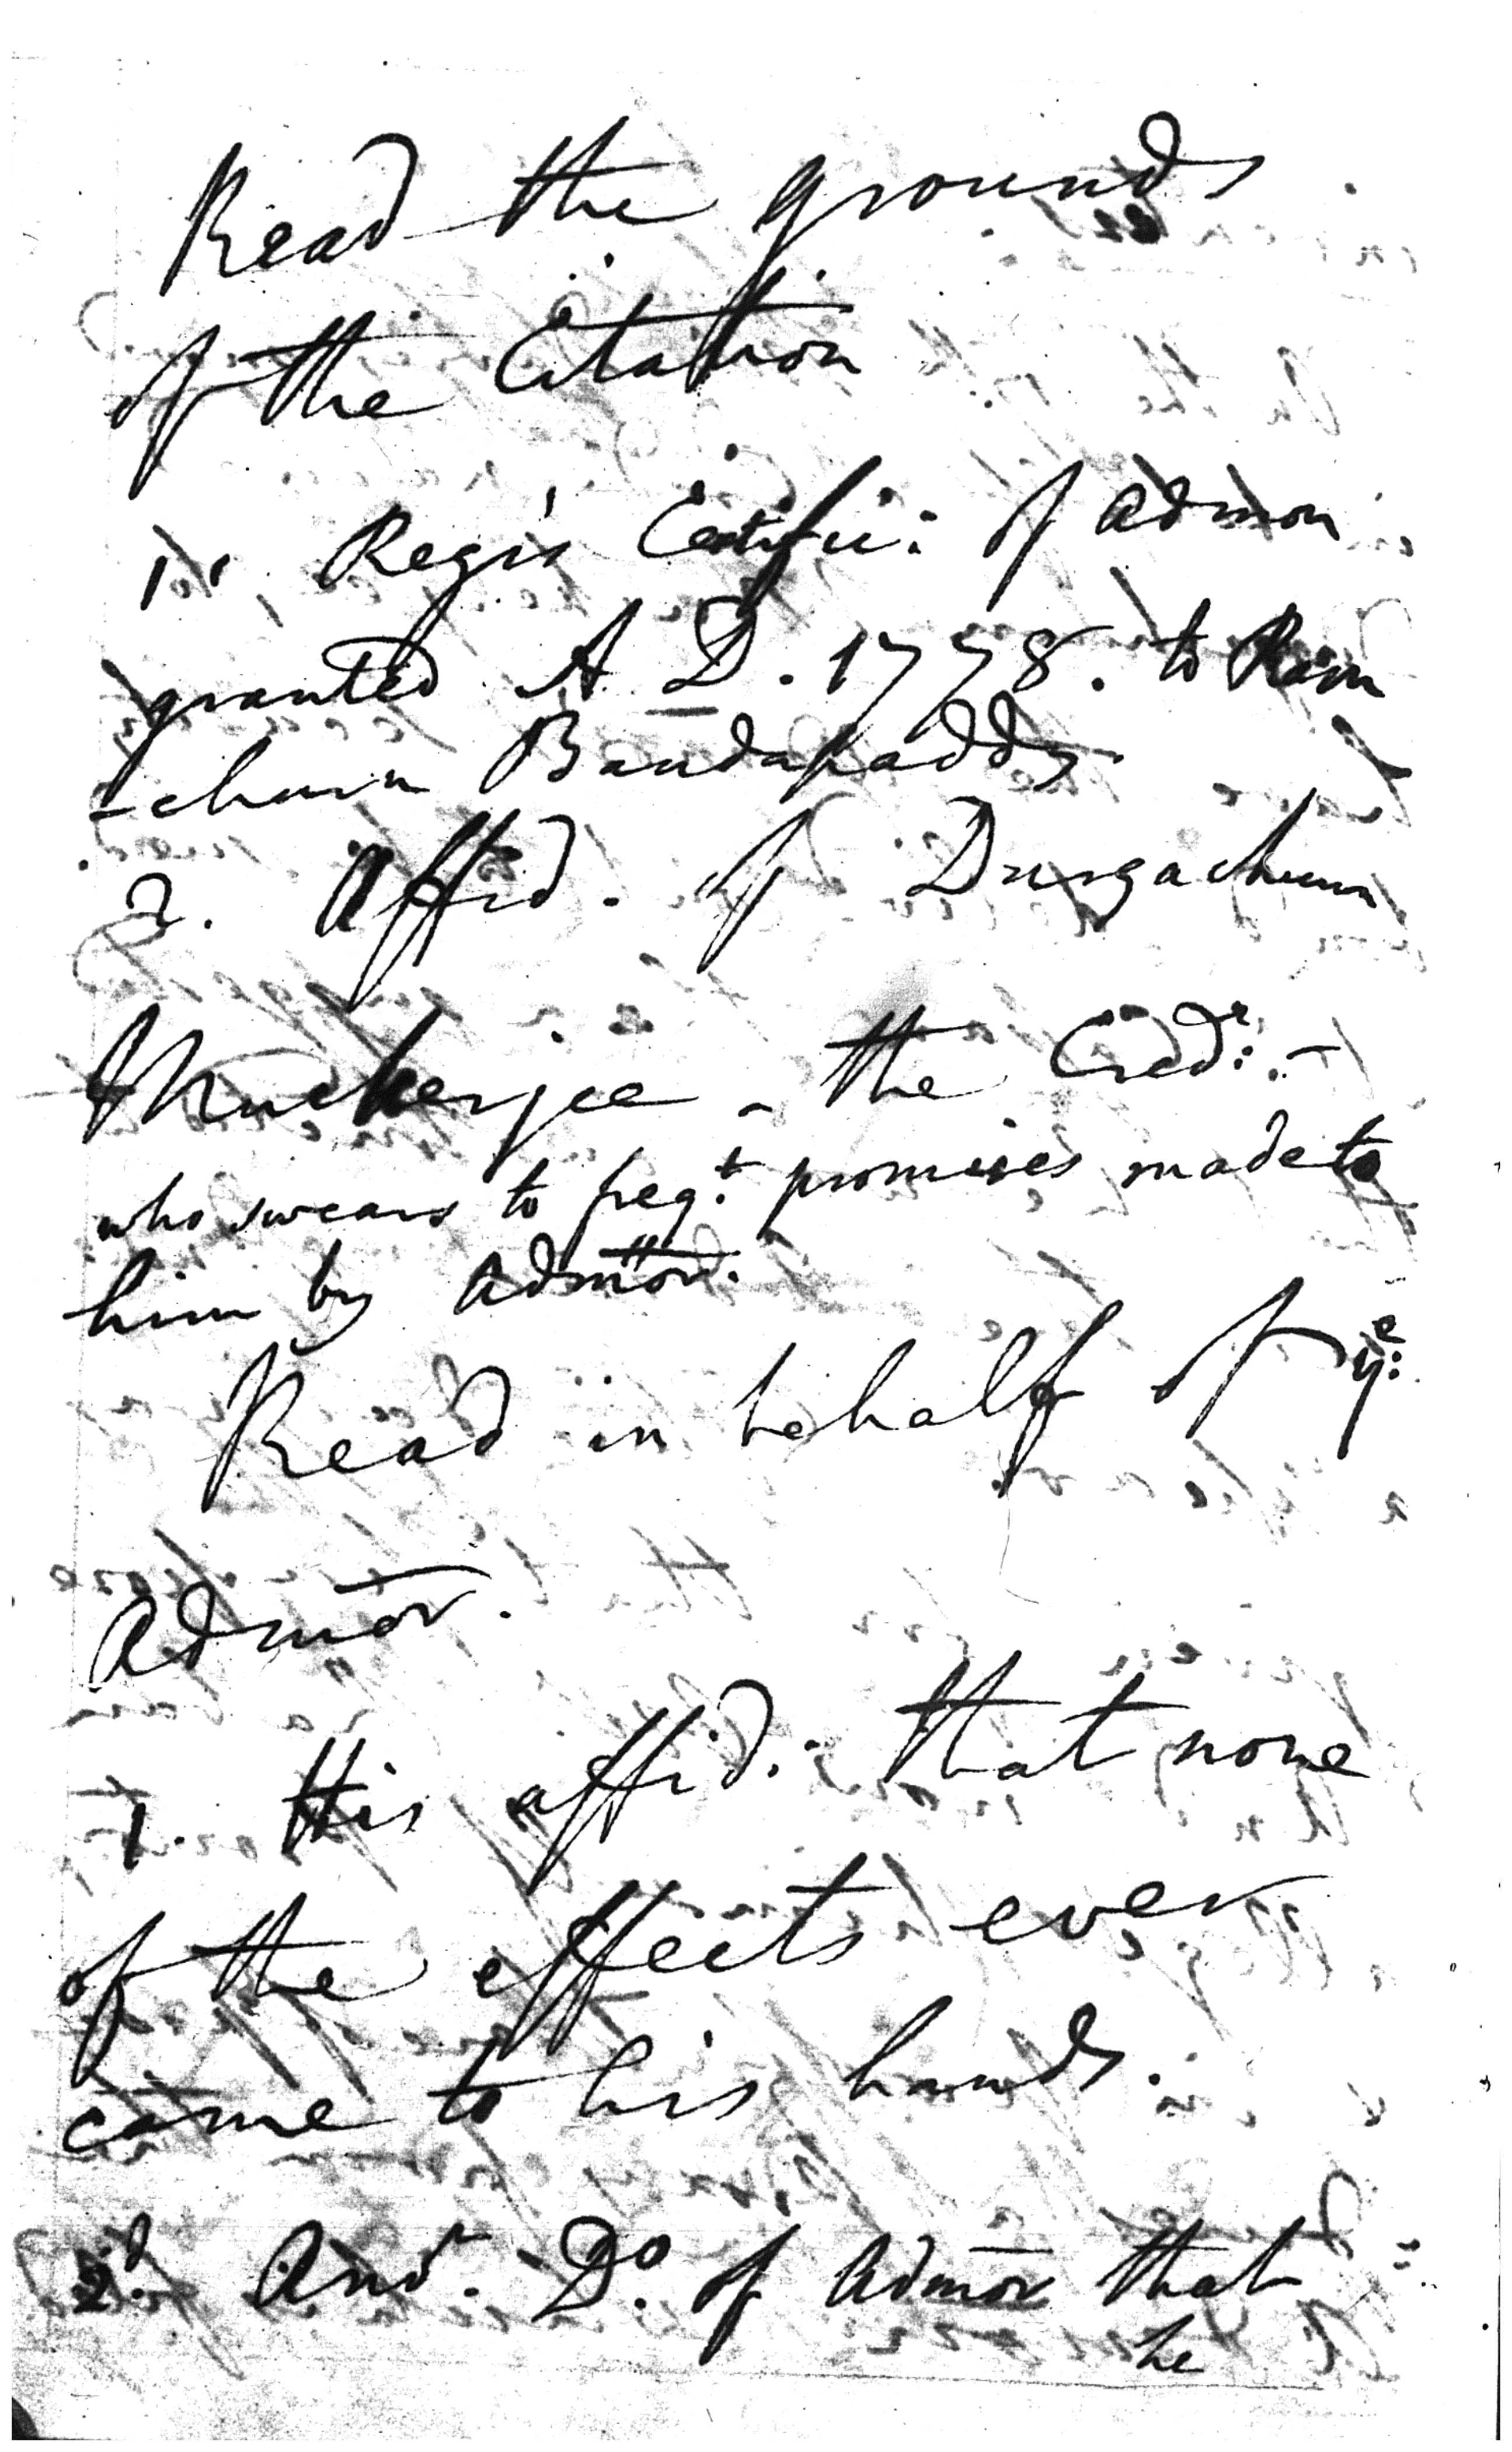 Read the grounds
of the Citation
1. Regr's Certific: of admon
granted A D. 1778. to Ram
-churn Bandapaddy.
2. Affid. of Durgachurn
Muckerjee - the Credr: -
who swears to freqt: promises made to
him by Admor.
Read in behalf of ye:
Admor.
1. His affid: that none
of the effects ever
came to his hands.
2d: Anr. Do. of Admor that
he